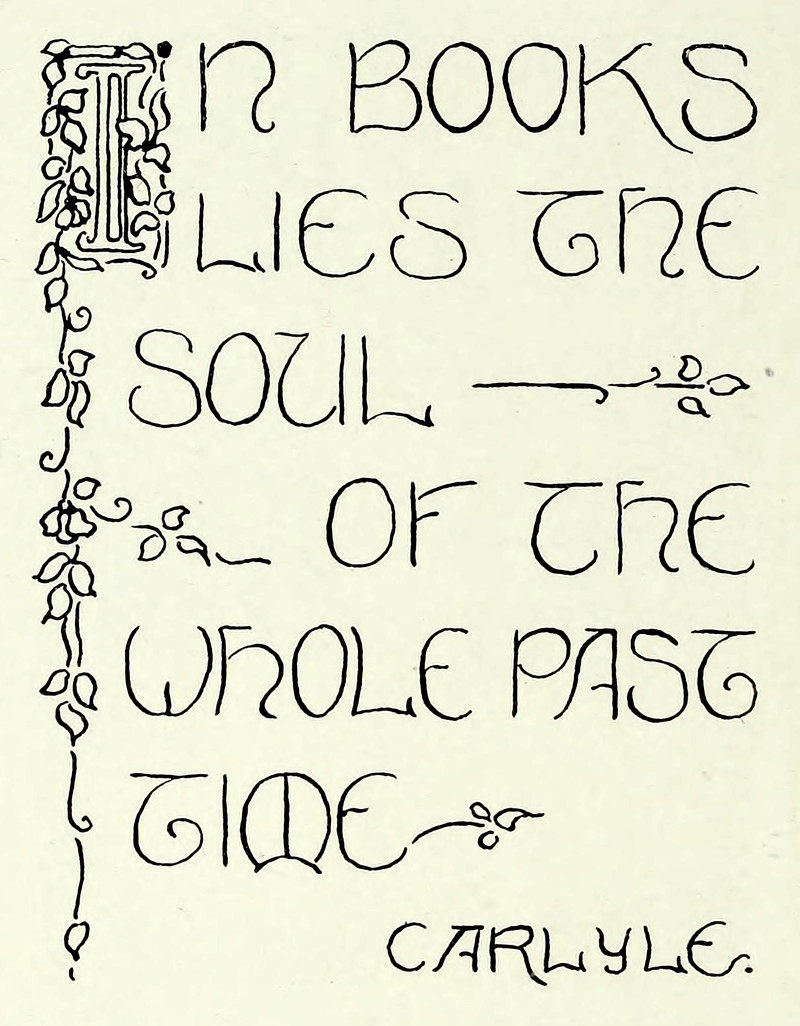 IN BOOKS
LIES THE
SOUL
OF THE
WHOLE PAST
TIME
CARLYLE.